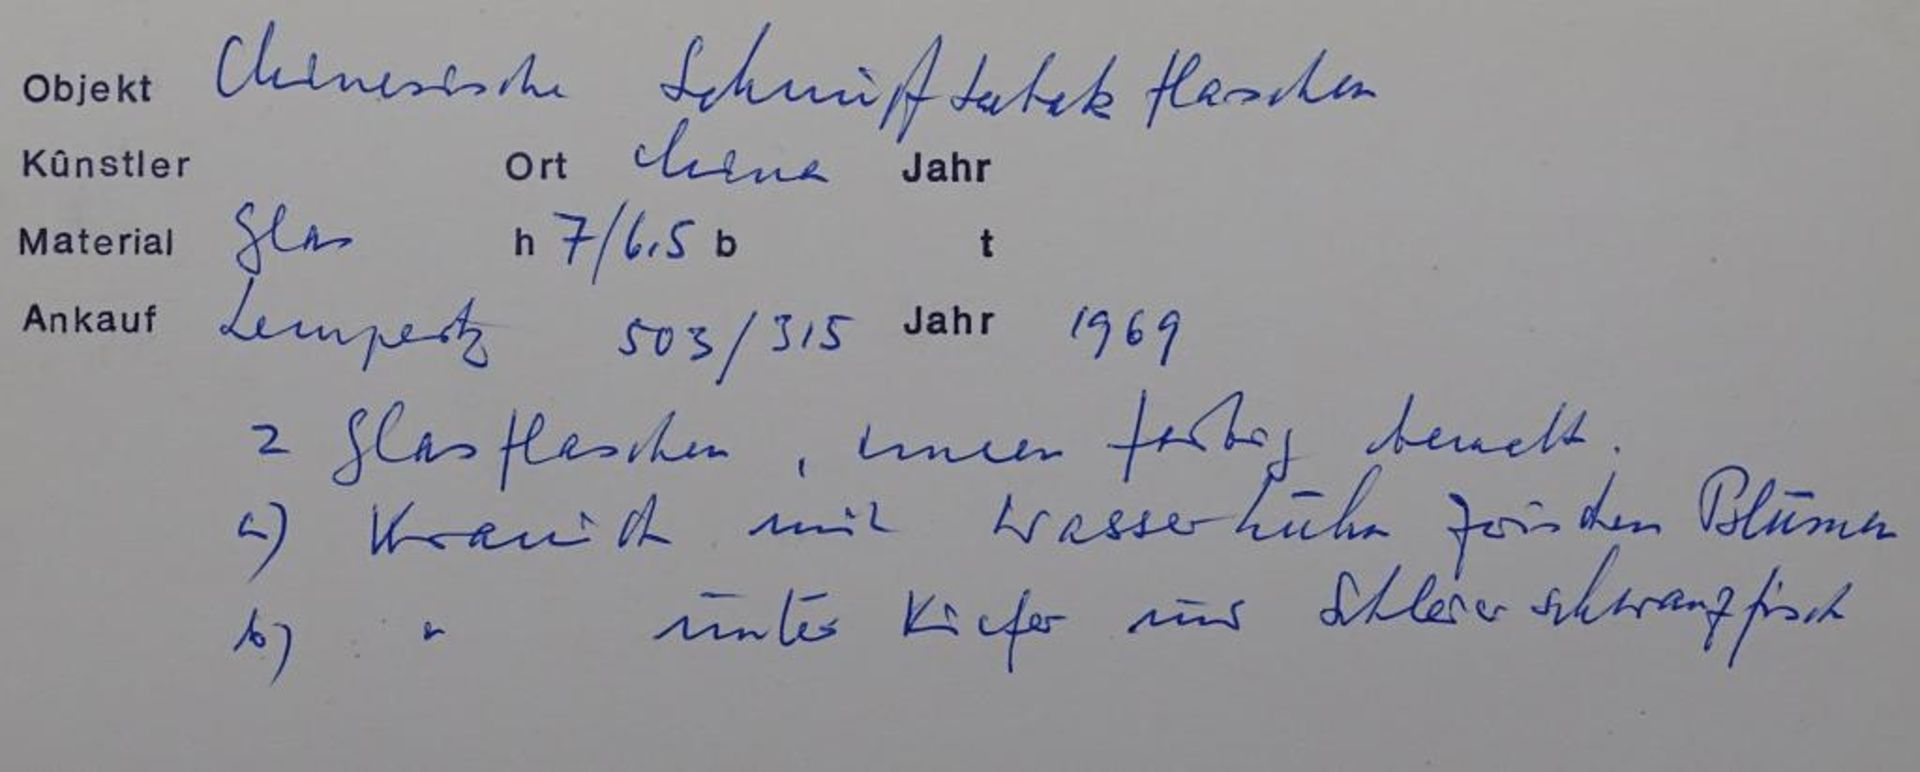 Objekt Chinesische Schnupftabakflaschen
Künstler Ort China Jahr
Material Glas h 7/6,5 b t
Ankauf Lempertz 503/315 Jahr 1969
2 Glasflaschen, innen farbig bemalt.
a) Kranich mit Wasserhuhn zwischen Blumen
b) " unter Kiefer und Schleierschwanzfisch